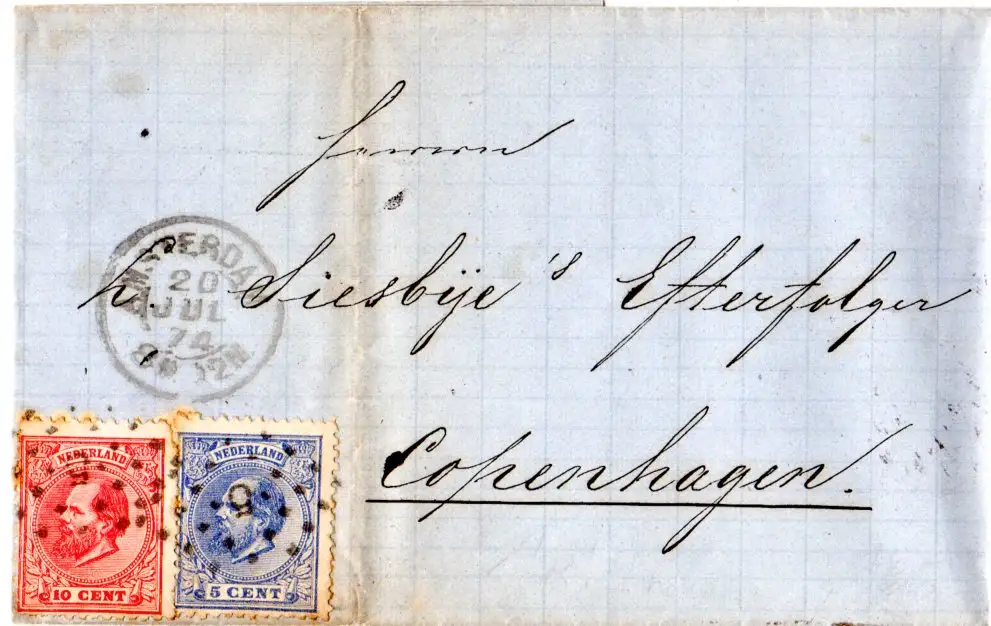 Herrn
L. Siesbÿe's Efterfolger
Copenhagen.
AMSTERDAM
20
JUL
74
NEDERLAND
10 CENT
NEDERLAND
5 CENT